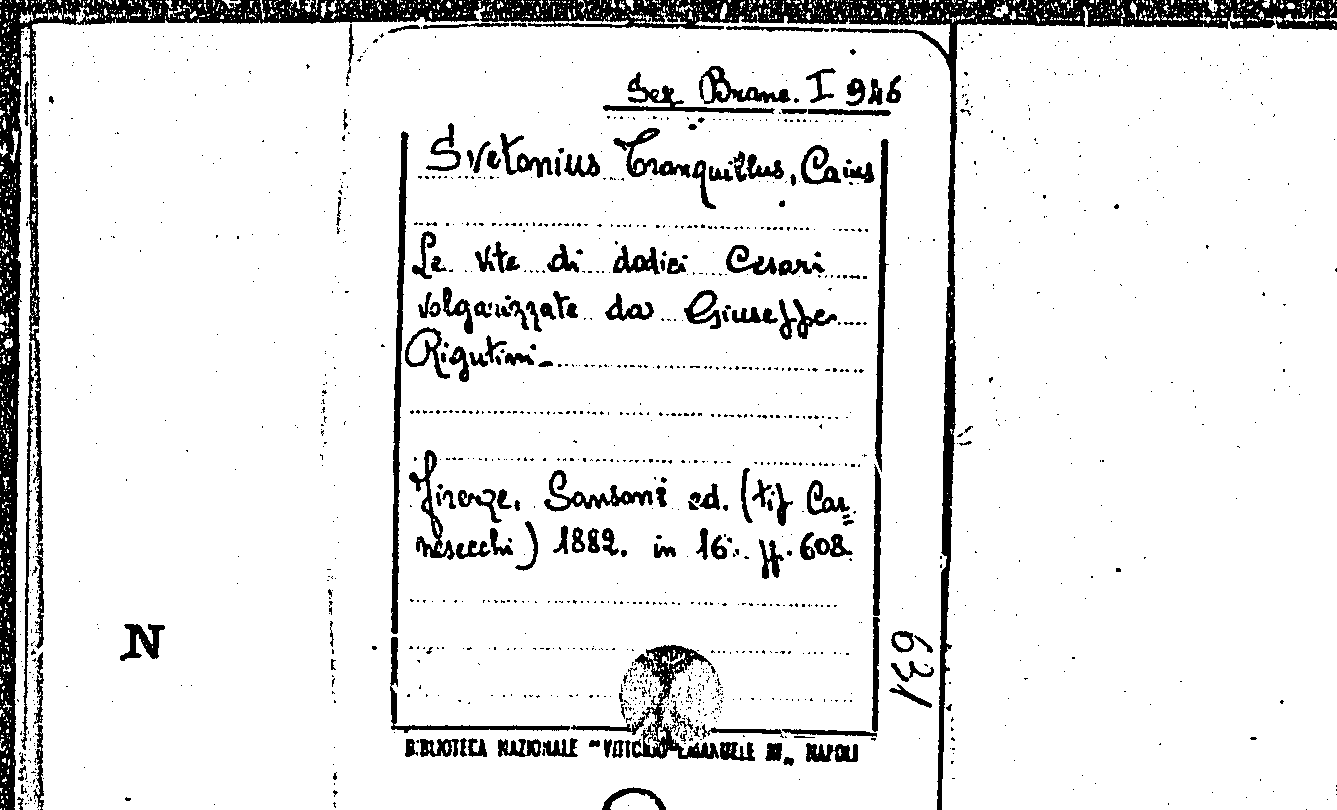 Sez Branc. I 946
Svetonius Tranquillus, Caius
Le vite di dodici Cesari
volgarizzate da Giuseppe
Rigutini-
Firenze, Sansoni ed. (tip Car=
nesecchi) 1882. in 16°. pp. 608.
N
631
BIBLIOTECA NAZIONALE "VITTORIO EMANUELE III" NAPOLI